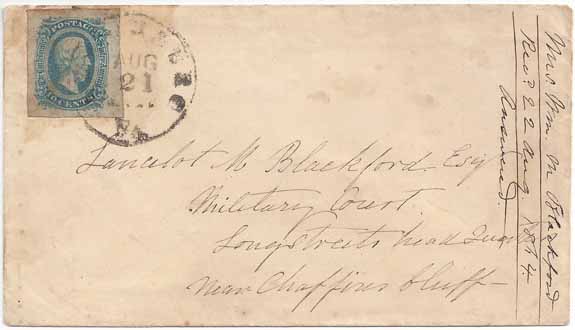 POSTAGE
TEN CENTS
AUG
21
VA
Lancelot M Blackford. Esq
Military Court
Longstreets head Quar
Near Chaffins bluff
Mrs Wm M Blackford
Recd 22 Aug. 1864
Answered